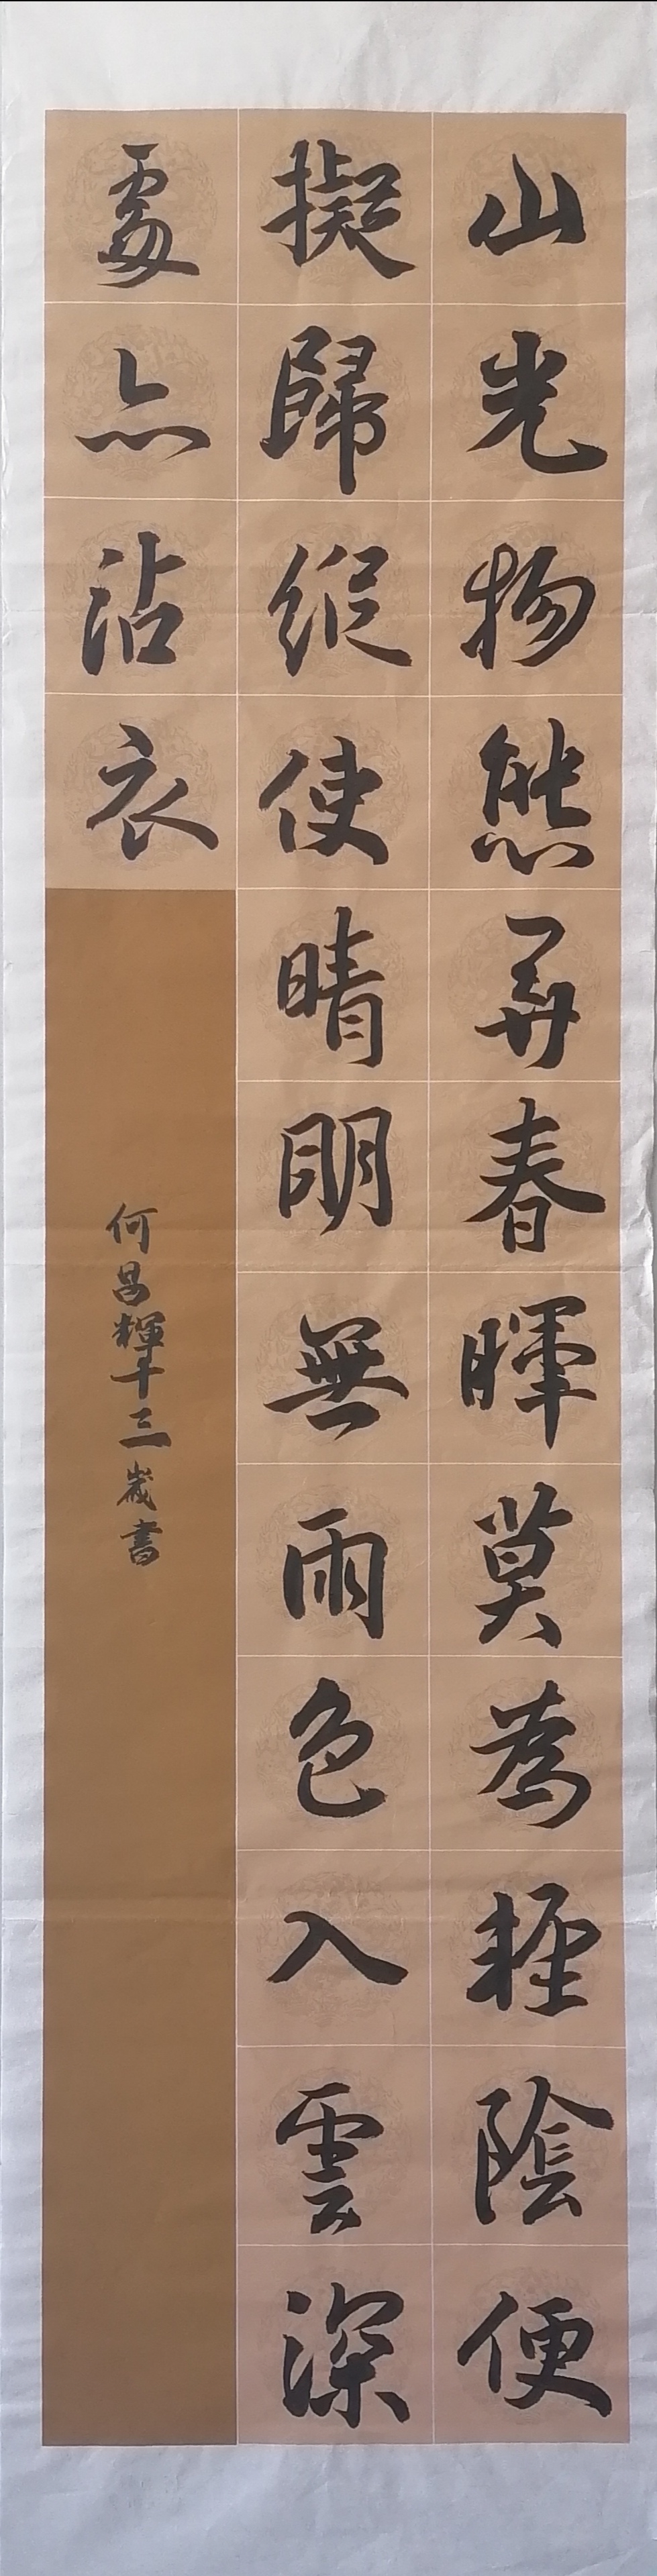 山光物態弄春暉莫為輕陰便
擬歸縱使晴明無雨色入雲深
處亦沾衣
何昌輝十三歲書